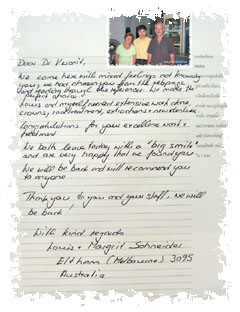 Dear Dr
We came here with mixed feelings not knowing
you, we had chosen you from the webpage
and reading through the references. We made the
perfect choice.
Louis and myself needed extensive work done,
crowns, root treatment, extractions + new dentures
Congratulations for your excellent work +
treatment
We both leave today with a "big smile"
and are very happy that we found you
We will be back and will recommend you
to anyone
Thank you to you and your staff, we will
be back!
With kind regards
Louis + Margrit Schneider
Eltham (Melbourne) 3095
Australia